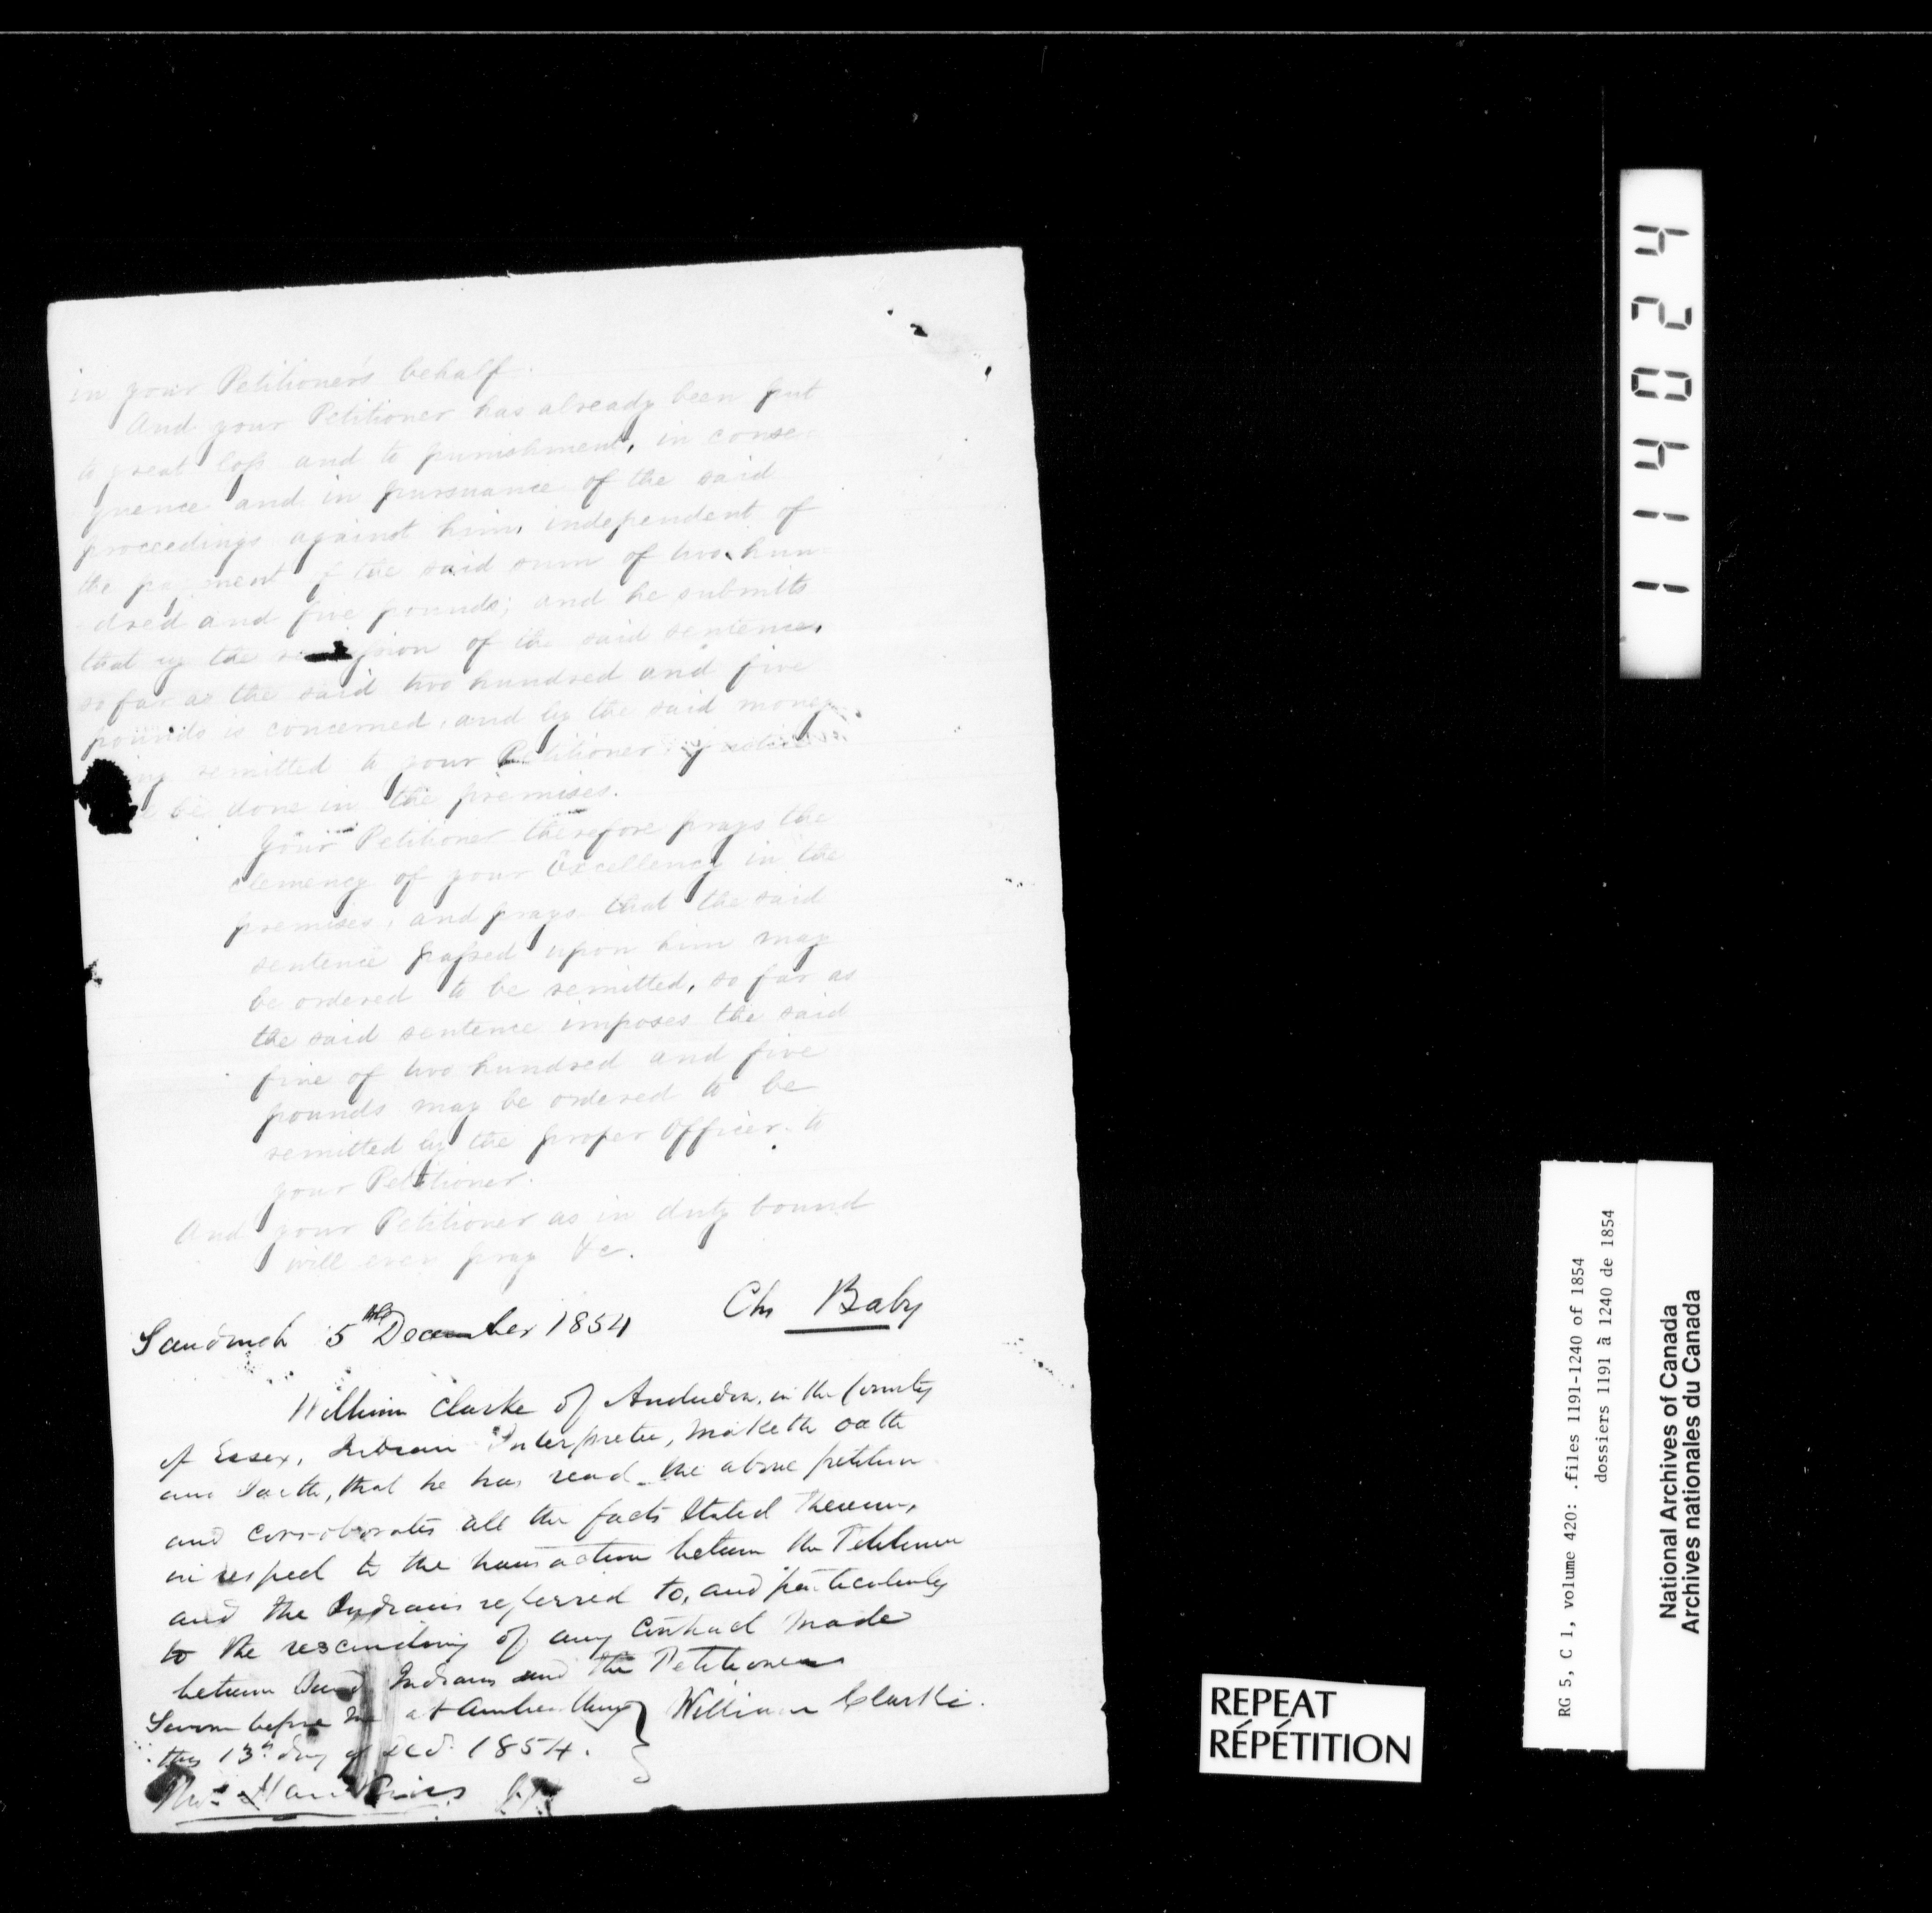 in your Petitioner's behalf.
And your Petitioner has already been put
to great loss and to punishment, in conse-
quence and in pursuance of the said
proceedings against him, independent of
the payment of the said sum of two hun-
-dred and five pounds; and he submits
that by the of the said sentence,
so far as the said two hundred and five
pounds is concerned, and by the said money
remitted to your Petitioner justice
be done in the premises.
Your Petitioner therefore prays the
clemency of your Excellency in the
premises, and prays that the said
sentence passed upon him may
be ordered to be remitted, so far as
the said sentence imposes the said
fine of two hundred and five
pounds may be ordered to be
remitted by the proper Officer to
your Petitioner.
And your Petitioner as in duty bound
will ever pray &c.
Chs Baby
Sandwich 5th December 1854
William Clarke of Anderdon, in the County
of Essex, Indian Interpreter, maketh oath
and saith, that he has read the above petition
and corroborates all the facts stated therein,
in respect to the transaction between the Petitioner
and the Indians referred to, and particularly
to the rescinding of any contract made
between said Indians and the Petitioner
Sworn before me at Amherstburg } William Clarke.
this 13th day of Decr. 1854.
114024
RG 5, C 1, volume 420: .files 1191-1240 of 1854
dossiers 1191 à 1240 de 1854
National Archives of Canada
Archives nationales du Canada
REPEAT
RÉPÉTITION